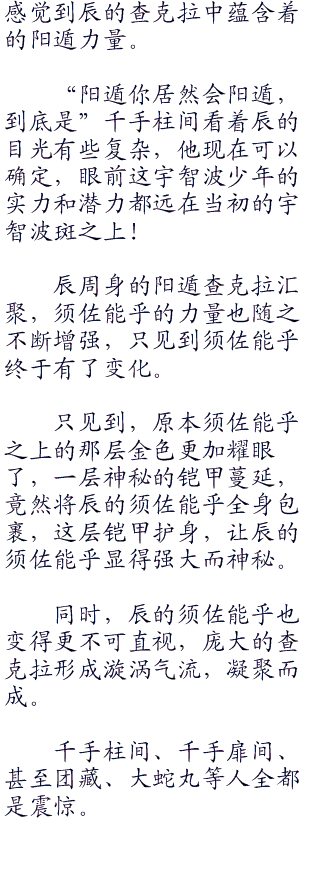 感觉到辰的查克拉中蕴含着
的阳遁力量。
“阳遁你居然会阳遁，
到底是”千手柱间看着辰的
目光有些复杂，他现在可以
确定，眼前这宇智波少年的
实力和潜力都远在当初的宇
智波斑之上！
辰周身的阳遁查克拉汇
聚，须佐能乎的力量也随之
不断增强，只见到须佐能乎
终于有了变化。
只见到，原本须佐能乎
之上的那层金色更加耀眼
了，一层神秘的铠甲蔓延，
竟然将辰的须佐能乎全身包
裹，这层铠甲护身，让辰的
须佐能乎显得强大而神秘。
同时，辰的须佐能乎也
变得更不可直视，庞大的查
克拉形成漩涡气流，凝聚而
成。
千手柱间、千手扉间、
甚至团藏、大蛇丸等人全都
是震惊。